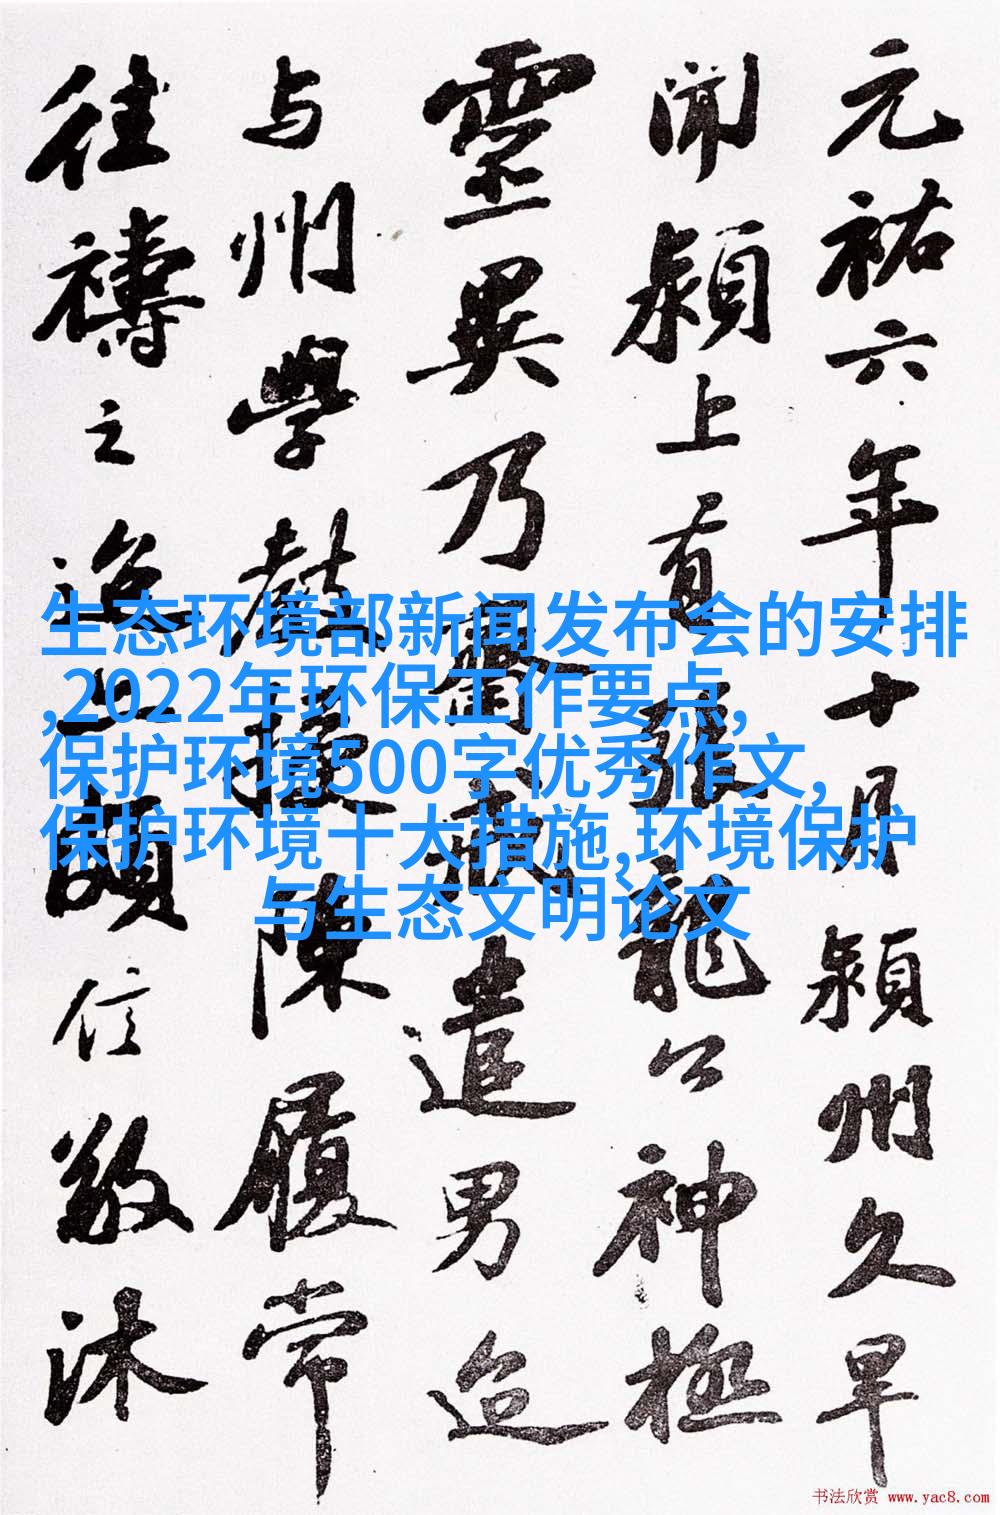 元祐六年十月潁州久旱
聞潁上有張龍公神極
靈異乃齋戒遣男迨
与州學教授陳履常
往禱之迨亦頗信敬沐
生态环境部新闻发布会的安排
,2022年环保工作要点,
保护环境500字优秀作文,
保护环境十大措施,环境保护
与生态文明论文
书法欣赏 www.yac8.com